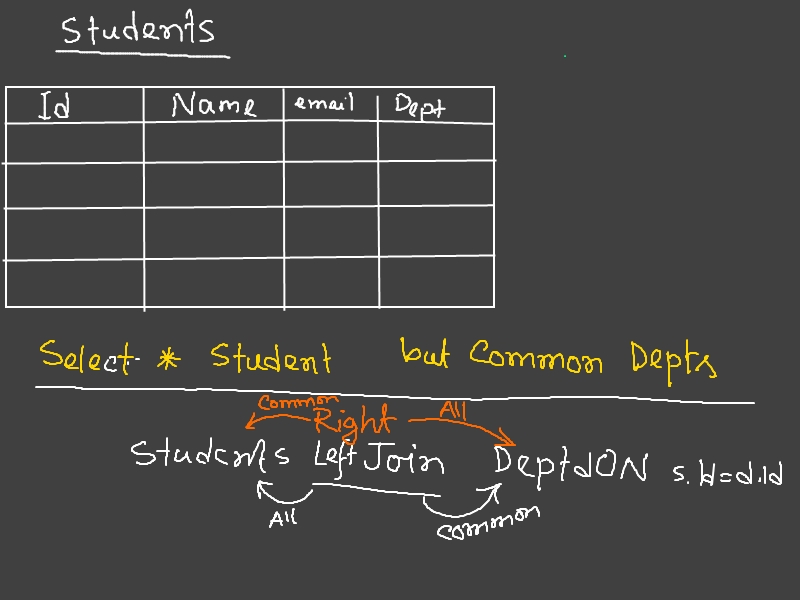 Students
Id Name email Dept
Select * Student but Common Depts
Common Right All
Students Left Join Dept d ON s.Id=d.id
All Common